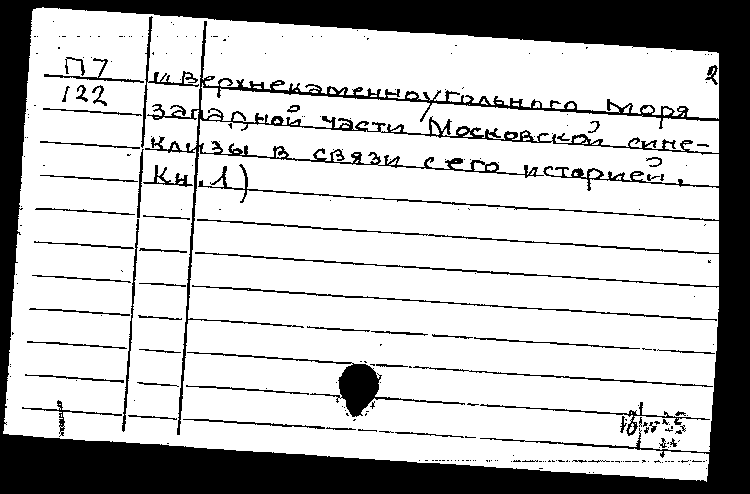 2
П7
122
и верхнекаменноугольного моря
западной части Московской сине-
клизы в связи с его историей.
Кн. 1)